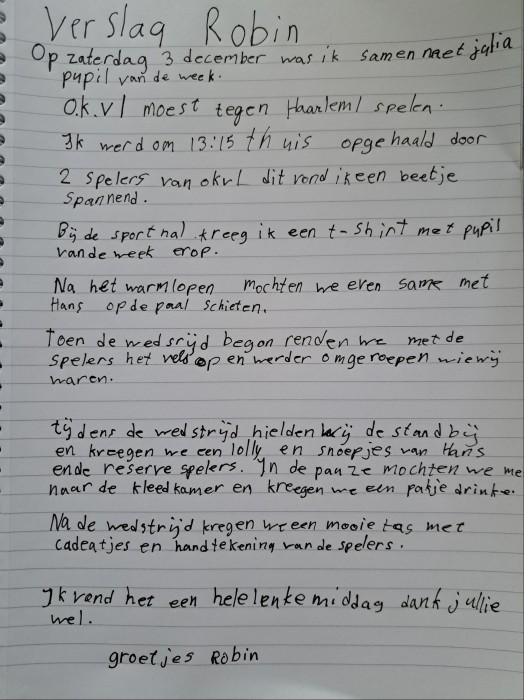 Verslag Robin
Op zaterdag 3 december was ik samen met julia
pupil van de week.
O.K.V1 moest tegen Haarlem1 spelen.
Ik werd om 13:15 thuis opgehaald door
2 spelers van okv1 dit vond ik een beetje
spannend.
Bij de sporthal kreeg ik een t-shirt met pupil
van de week erop.
Na het warmlopen mochten we even same met
Hans op de paal schieten.
Toen de wedsrijd begon renden we met de
spelers het veld op en werden omgeroepen wie wij
waren.
tijdens de wedstrijd hielden wij de stand bij
en kreegen we een lolly en snoepjes van Hans
en de reserve spelers. In de pauze mochten we me
naar de kleedkamer en kreegen we een pakje drinke.
Na de wedstrijd kregen we een mooie tas met
cadeatjes en handtekening van de spelers.
Ik vond het een hele leuke middag dank jullie
wel.
groetjes Robin